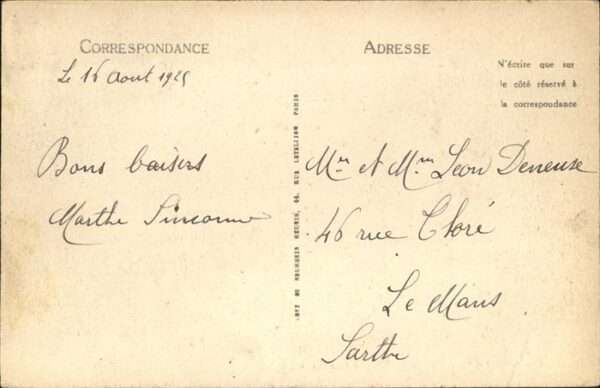 CORRESPONDANCE
Le 16 aout 1925
Bons baisers
Marthe
ADRESSE
N'écrire que sur
le côté réservé à
la correspondance
Mr et Mme Leon Deneuse
46 rue
Le Mans
Sarthe
RUE LETELLIER PARIS